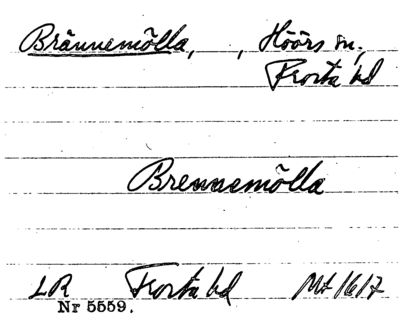 Brännemölla, , Höörs sn,
Frosta hd
Brennemölla
LR Frosta hd Mt 1617
Nr 5559.